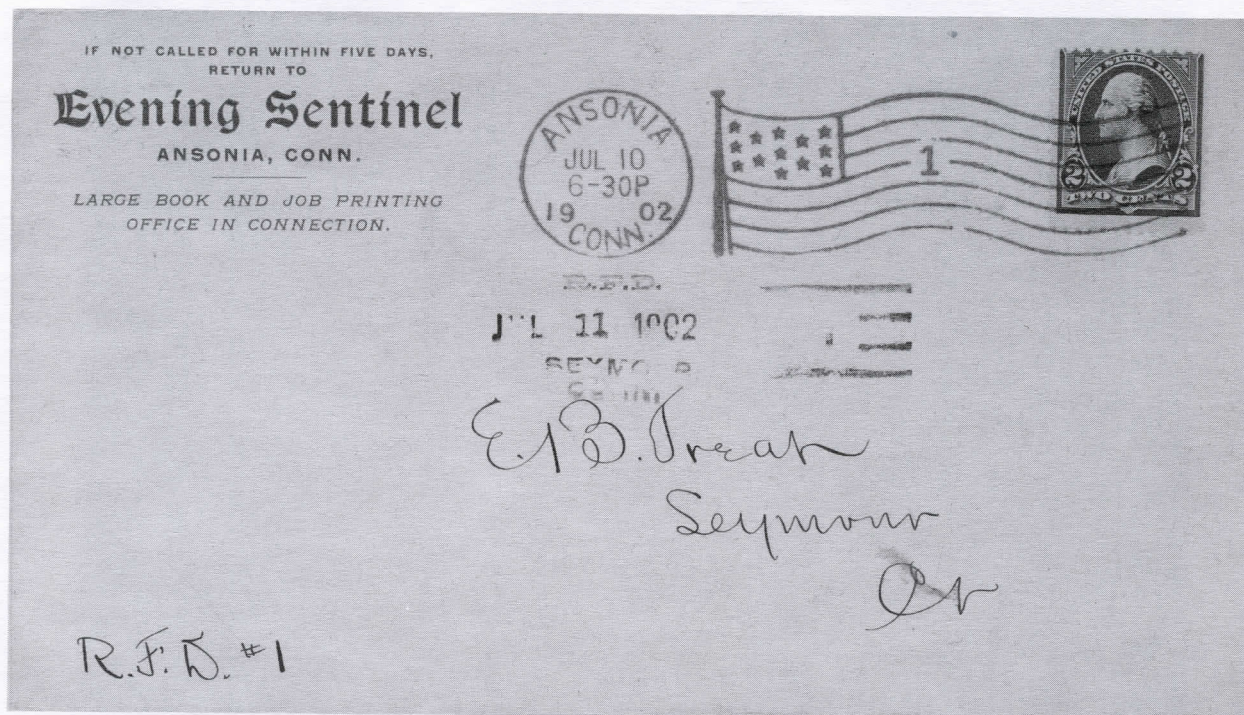 IF NOT CALLED FOR WITHIN FIVE DAYS,
RETURN TO
Evening Sentinel
ANSONIA, CONN.
LARGE BOOK AND JOB PRINTING
OFFICE IN CONNECTION.
ANSONIA
JUL 10
6-30P
19 02
CONN.
1
UNITED STATES POSTAGE
2 2
TWO CENTS
R.F.D.
JUL 11 1902
E. B. Treat
Seymour
Ct
R.F.D. #1